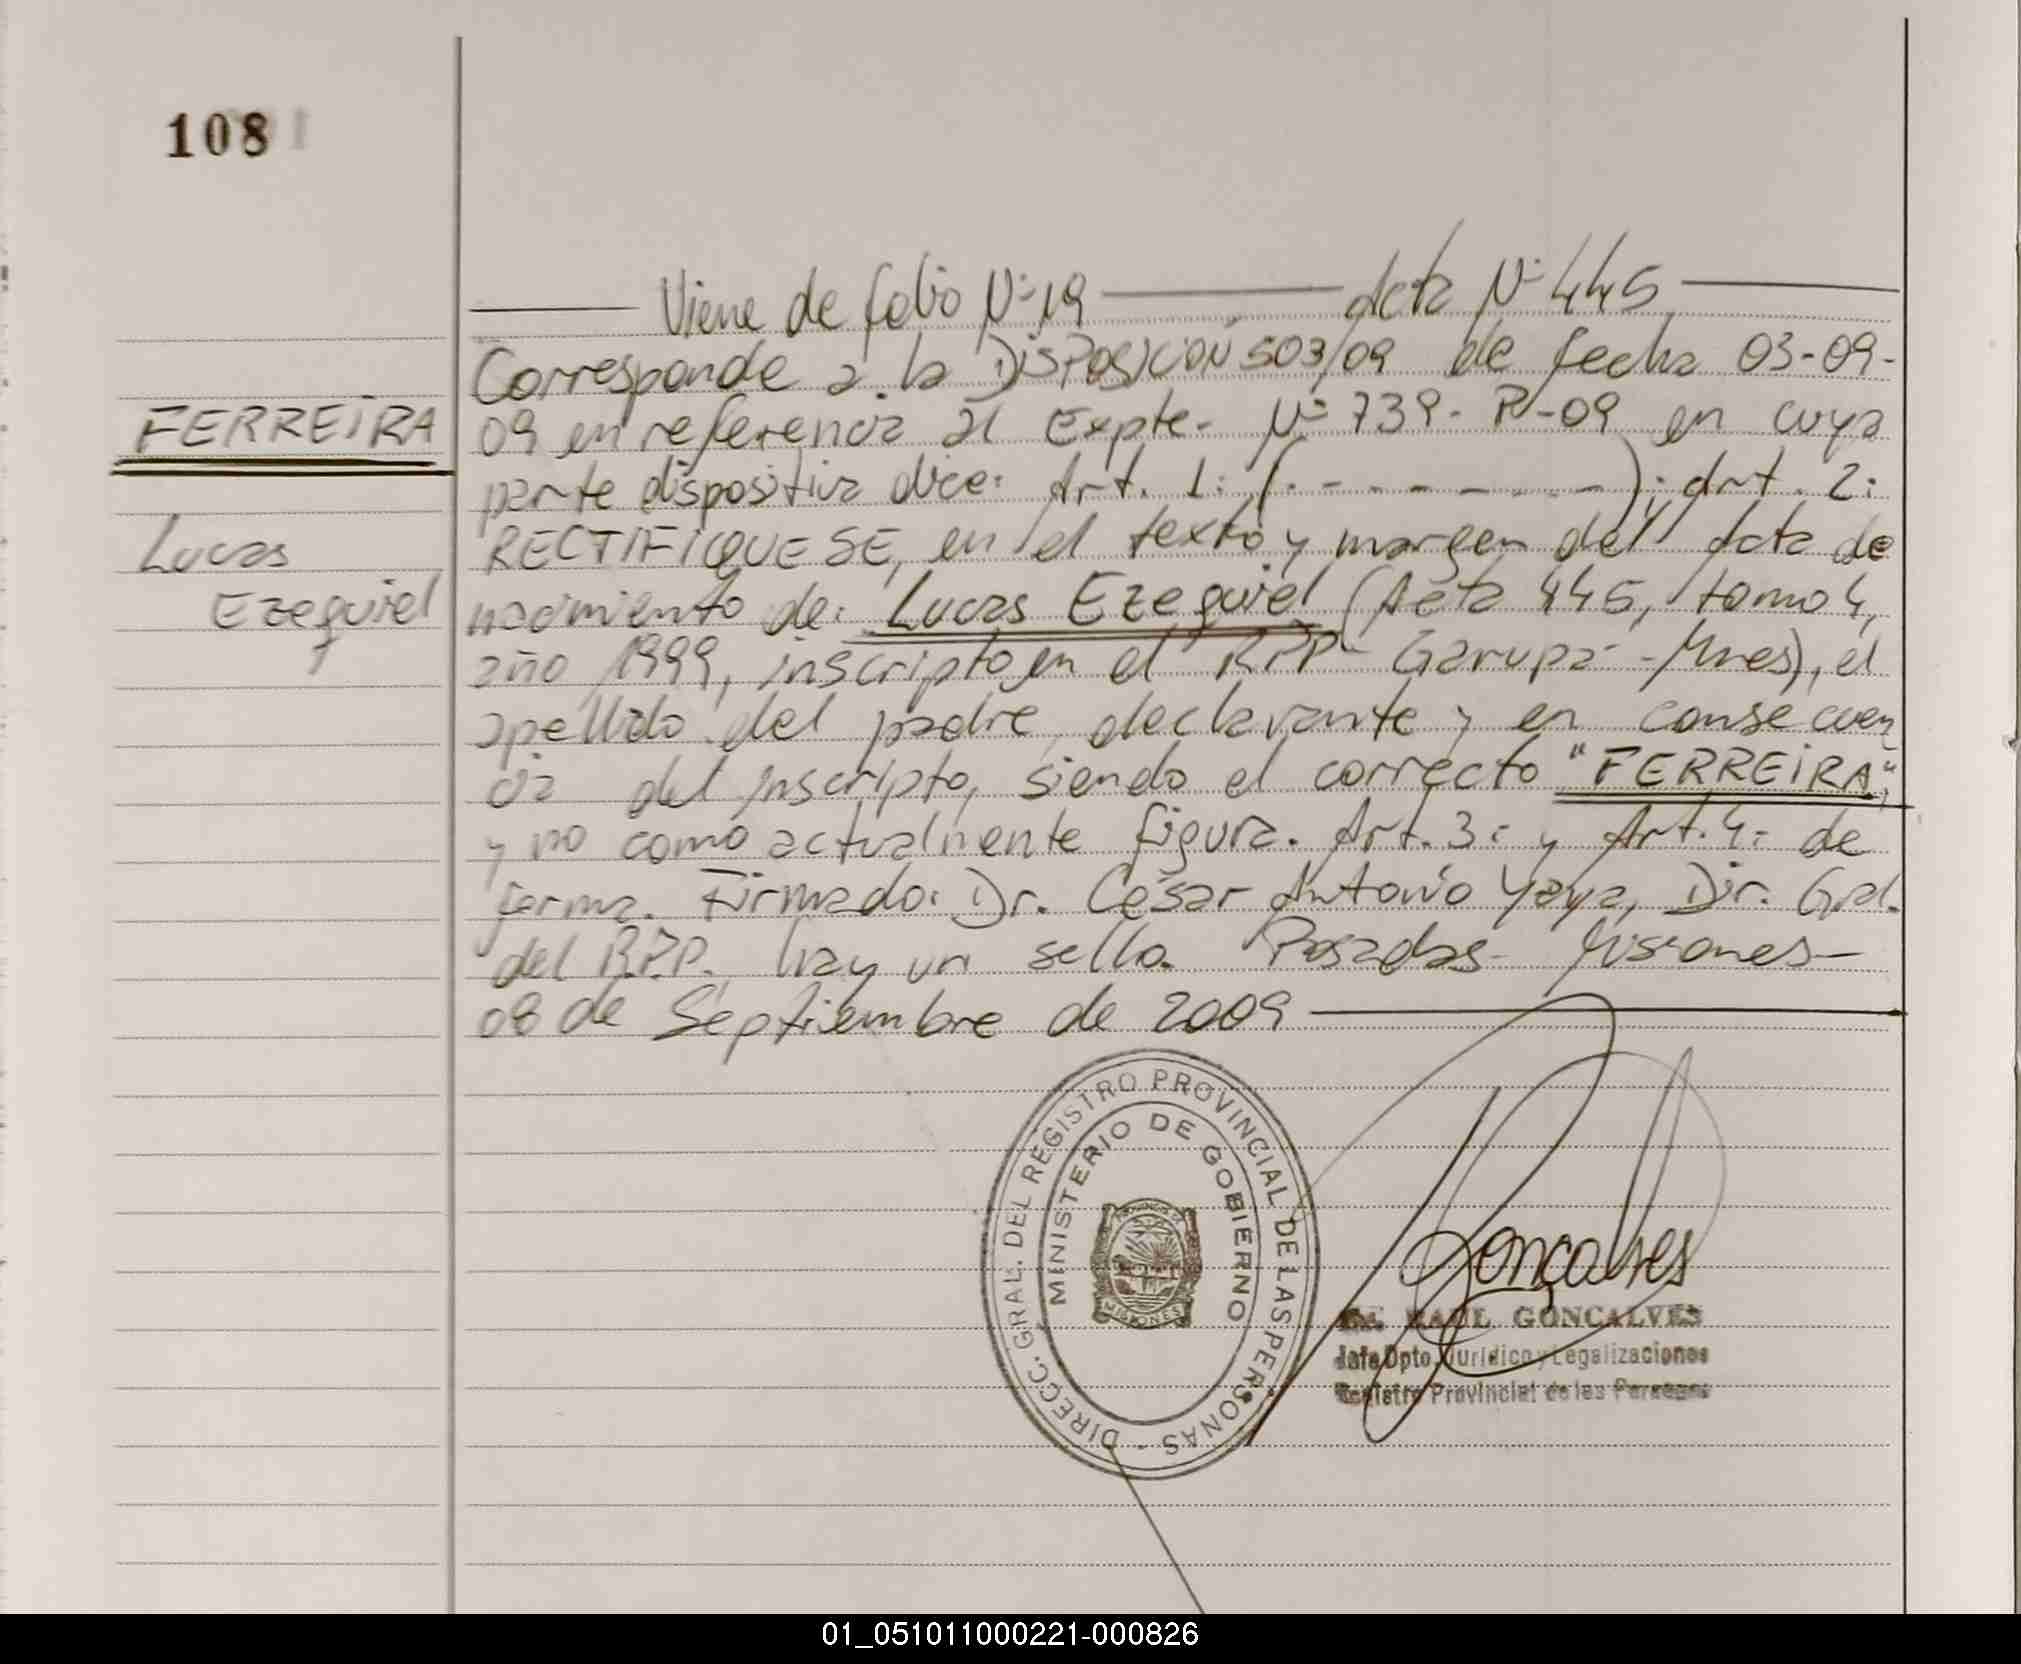 108
Viene de folio Nº 19 — Acta Nº 445
Corresponde a la DISPOSICIÓN 503/09 de fecha 03-09-
FERREIRA
09 en referencia al Expte. Nº 739- R-09 en cuya
parte dispositiva dice: Art. 1: (- - - - - - -); Art. 2:
Lucas
RECTIFIQUESE, en el texto y margen del Acta de
Ezequiel
nacimiento de: Lucas Ezequiel (Acta 445, tomo 4,
año 1999, inscripto en el RPP- Garupa - Mnes), el
apellido del padre declarante y en consecuen
cia del inscripto, siendo el correcto "FERREIRA",
y no como actualmente figura. Art. 3: y Art. 4: de
forma. Firmado: Dr. César Antonio Yaya, Dir. Gral.
del RPP. hay un sello. Posadas- Misiones-
08 de Septiembre de 2009
DIRECC. GRAL. DEL REGISTRO PROVINCIAL DE LAS PERSONAS -
MINISTERIO DE GOBIERNO
MISIONES
Gonçalves
RAUL GONCALVES
Jefe Dpto. Jurídico y Legalizaciones
Registro Provincial de las Personas
01_051011000221-000826